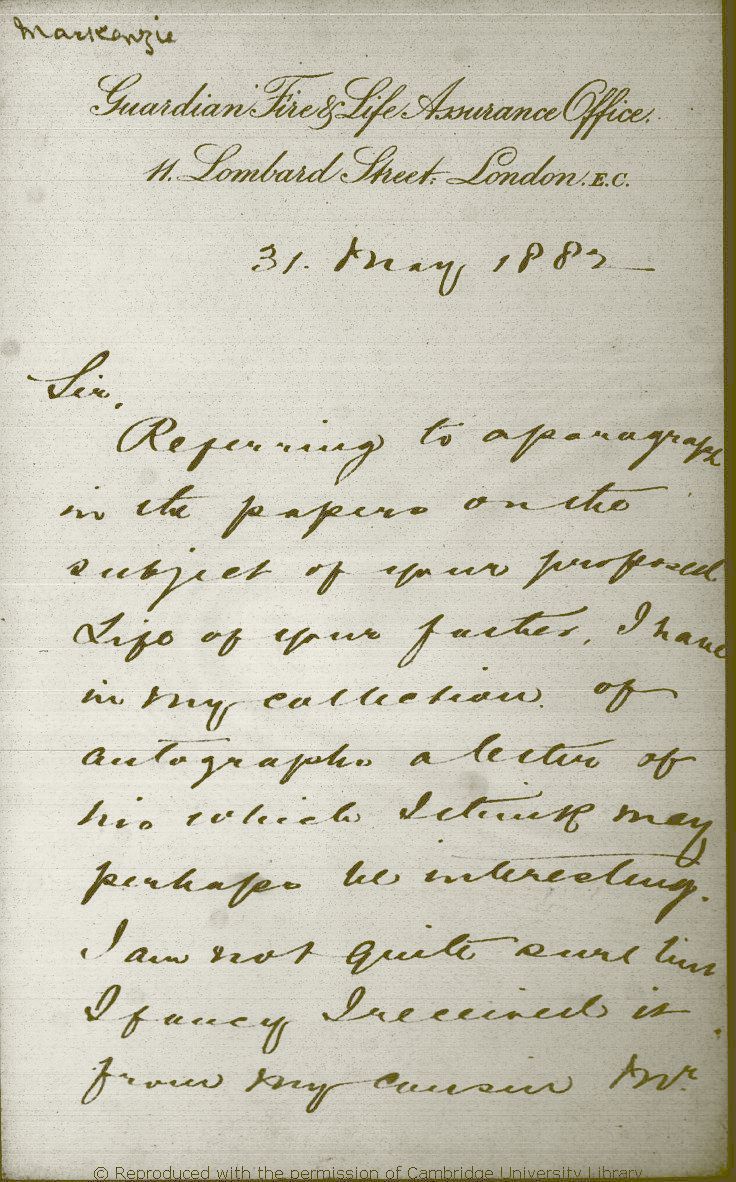 Mackenzie
Guardian Fire & Life Assurance Office.
11. Lombard Street. London. E.C.
31. May 1882
Sir,
Referring to a paragraph
in the papers on the
subject of your proposed
Life of your father, I have
in my collection of
autographs a letter of
his which I think may
perhaps be interesting.
I am not quite sure but
I fancy I received it
from my cousin Mr.
© Reproduced with the permission of Cambridge University Library